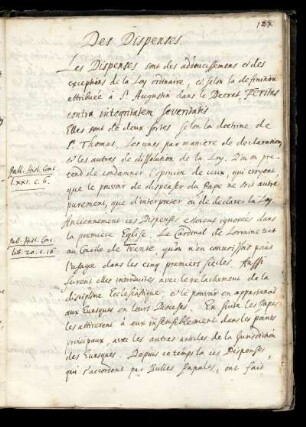 127
Des Dispenses
Les Dispenses sont des adoucissemens et des
exceptions de la Loy ordinaire, et selon la definition
attribuée à St Augustin dans le Decret
contra integritatem severitatis
Elles sont de deux sortes selon la doctrine de
St Thomas, les unes par maniere de declaration
et les autres de dissolution de la Loy.
de condamner l'opinion de ceux, qui croyent
que le pouvoir de dispenser du Pape ne soit autre
purement, que d'interpreter ou de declarer la Loy
Anciennement ces Dispenses estoient ignorées dans
la premiere Eglise. Le Cardinal de Lorraine dit
au Concile de Trente qu'on n'en connoissoit point
l'usage dans les cinq premiers siecles. Aussi
furent elles introduites avec le relachement de la
discipline Ecclesiastique et le pouvoir en appartenoit
aux Evesques en leurs Dioceses. En suite les Papes
les attirerent à eux insensiblement dans les points
principaux avec les autres articles de la Jurisdiction
des Evesques. Depuis ce temps la ces Dispenses,
qui s'accordent par Bulles Papales, ont fait
Pall. Hist. Conc.
XXI. c. 6.
Pall. Hist. Conc.
lib. 20. c. 16